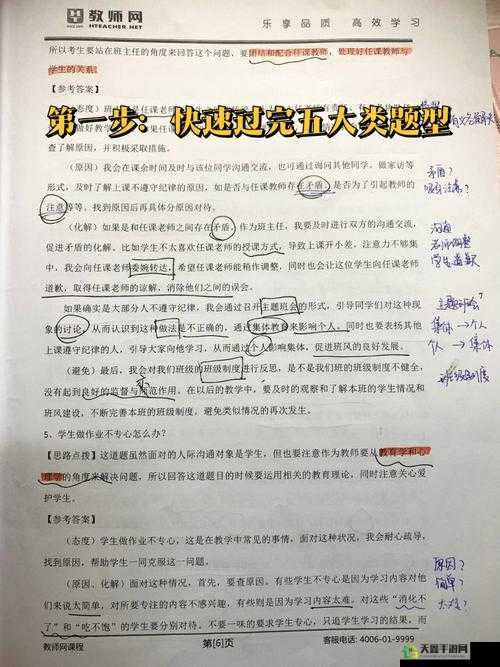 教师网
HTEACHER.NET
乐享品质 高效学习
所以考生要站在班主任的角度来回答这个问题,要团结和配合任课教师,处理好任课教师与
学生的关系。
【参考答案】
第一步:快速过完五大类题型
查了解原因,并积极采取措施。
(原因)我会在课余时间及时与该位同学沟通交流,也可通过询问其他同学、做家访等
形式,及时了解上课不遵守纪律的原因,如是否与任课教师存在矛盾,是否为了引起教师的
注意等等,找到原因后再具体分原因对待。
(化解)如果是和任课老师之间存在矛盾,作为班主任,我要及时进行双方的沟通交流,
促进矛盾的化解。比如学生不太喜欢任课老师的授课方式,导致上课开小差,注意力不够集
中,我会向任课老师委婉转达,希望任课老师能稍作调整,同时也会让这位学生向任课老师
道歉,取得任课老师的谅解,消除他们之间的误会。
如果确实是大部分人不遵守纪律,我会通过召开主题班会的形式,引导同学们对这种现
象的讨论,从而认识到这种做法是不正确的,通过集体教育来影响个人。同时也要表扬其他
上课遵守纪律的人,引导大家向他学习,从而通过个人影响集体,促进班风的良好发展。
(避免)最后,我会对我们班级的班级制度进行反思,是不是我们班的班级制度不健全,
没有起到良好的监督与示范作用。在以后的教学中,要及时的观察和了解本班的学生情况和
班风建设,不断完善本班的班级制度,避免类似情况的再次发生。
5、学生做作业不专心怎么办?
【思路点拨】这道题虽然面对的人际沟通对象是学生,但也要注意作为教师要从教育学和心
理学的角度来解决问题,所以回答这道题目的时候要运用相关的教育理论,同时注意关心爱
护学生。
【参考答案】
(态度)学生做作业不专心,这是在教学中常见的事情,面对这种状况,我会耐心疏导,
找到原因,帮助学生一同克服这一问题。
(原因、化解)面对这种情况,首先,要查原因。有些学生不专心是因为学习内容对他
们来说太简单,对所要专注的内容不感兴趣,有些则是因为学习内容太难,对这些“消化不
了”和“吃不饱”的学生要分别对待。不要一味的要求学生,只追求学生学习的结果,而
教师网课程
第[6]页
客服电话:4006-01-9999
矛盾?
沟通
主题班会
集体→个人
个人→集体
原因?
简单?
天鑫手游网